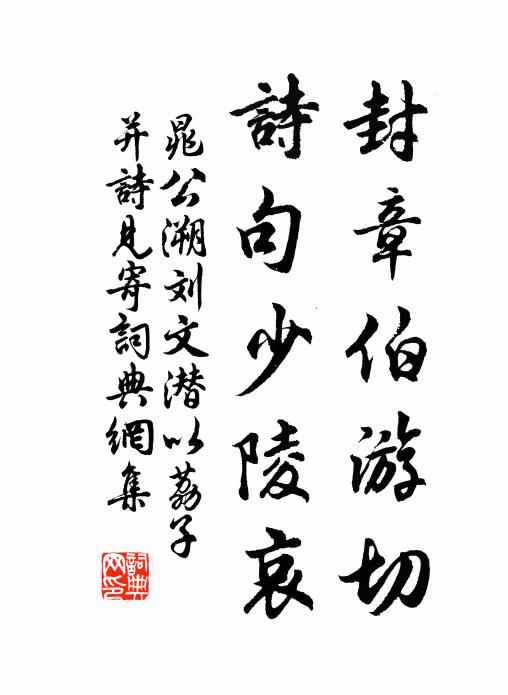 封章伯游切
詩句少陵哀
晁公溯刘文潜以荔子
并詩見寄詞典網集
詞典
网印